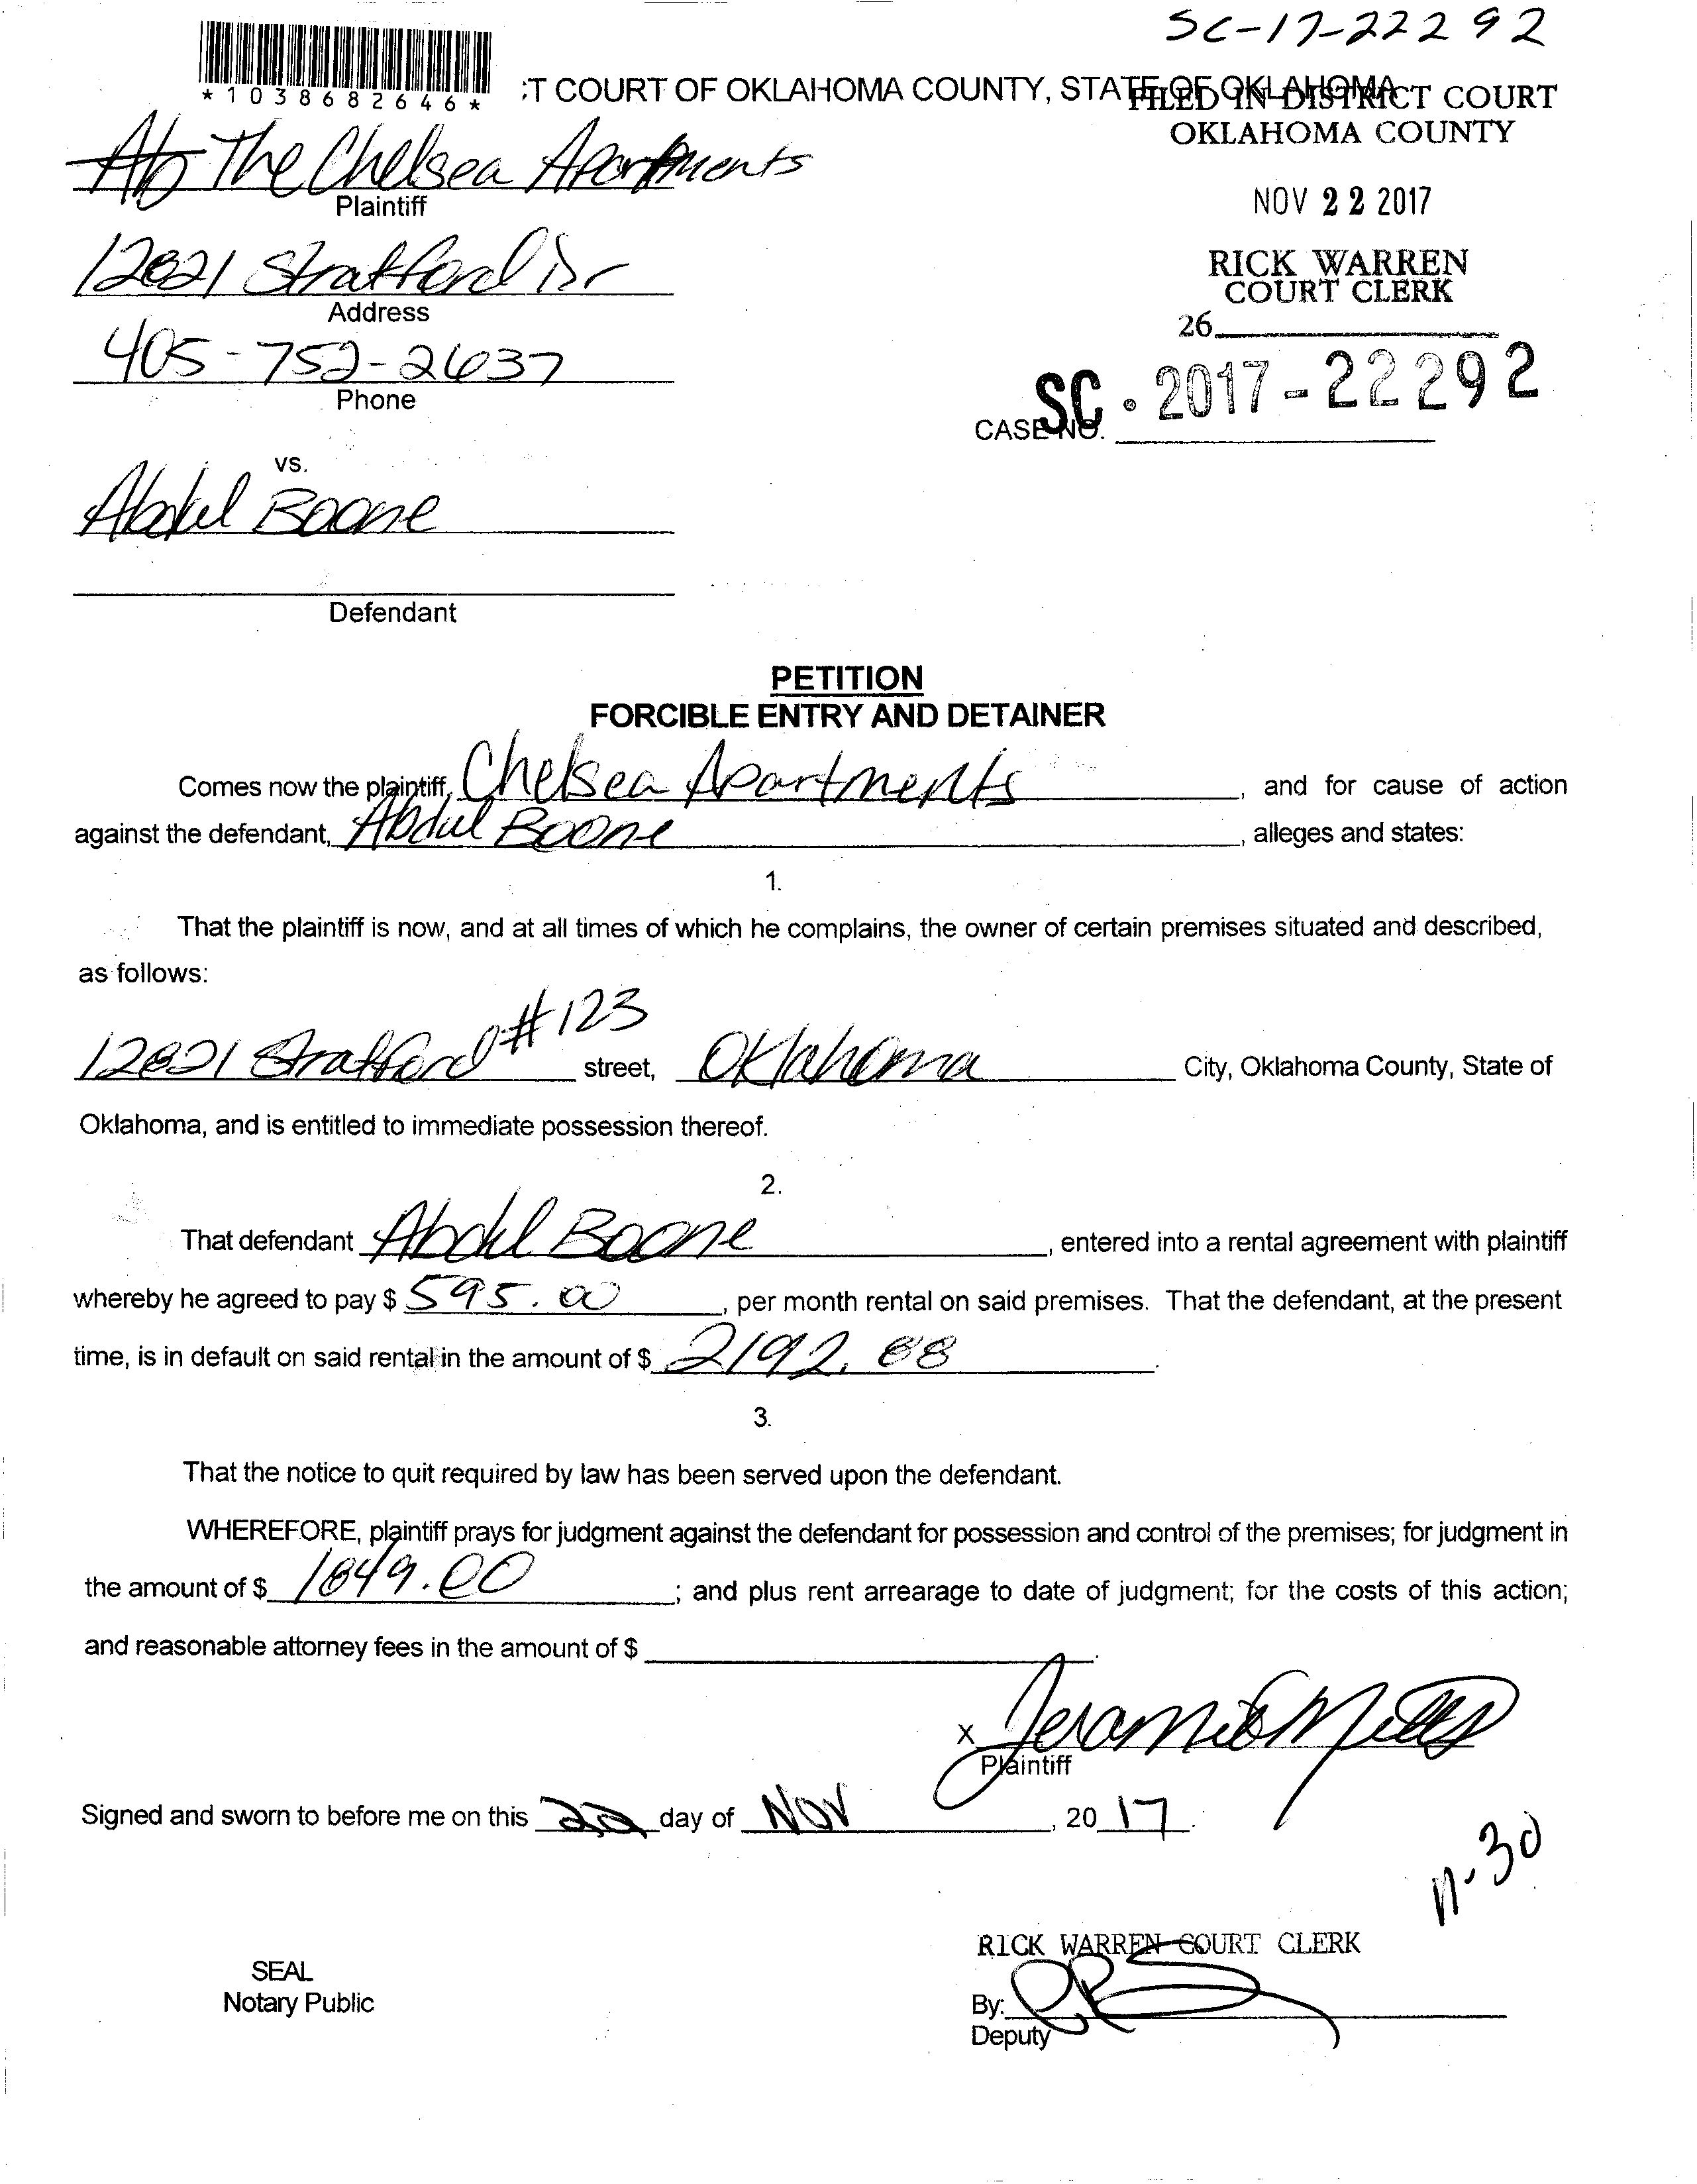 SC-17-22292
*1038682646*
:T COURT OF OKLAHOMA COUNTY, STATE OF OKLAHOMA
FILED IN DISTRICT COURT
OKLAHOMA COUNTY
The Chelsea Apartments
Plaintiff
NOV 22 2017
12821 Stratford Dr
Address
RICK WARREN
COURT CLERK
26
405-752-2637
Phone
CASE NO. SC-2017-22292
vs.
Abdul Boone
Defendant
PETITION
FORCIBLE ENTRY AND DETAINER
Comes now the plaintiff, Chelsea Apartments, and for cause of action
against the defendant, Abdul Boone, alleges and states:
1.
That the plaintiff is now, and at all times of which he complains, the owner of certain premises situated and described,
as follows:
12821 Stratford #123 street, Oklahoma City, Oklahoma County, State of
Oklahoma, and is entitled to immediate possession thereof.
2.
That defendant Abdul Boone, entered into a rental agreement with plaintiff
whereby he agreed to pay $ 595.00, per month rental on said premises. That the defendant, at the present
time, is in default on said rental in the amount of $ 2192.88.
3.
That the notice to quit required by law has been served upon the defendant.
WHEREFORE, plaintiff prays for judgment against the defendant for possession and control of the premises; for judgment in
the amount of $ 1849.00; and plus rent arrearage to date of judgment; for the costs of this action;
and reasonable attorney fees in the amount of $
X
Plaintiff
Signed and sworn to before me on this 22 day of Nov, 2017.
11-30
RICK WARREN COURT CLERK
SEAL
Notary Public
By:
Deputy